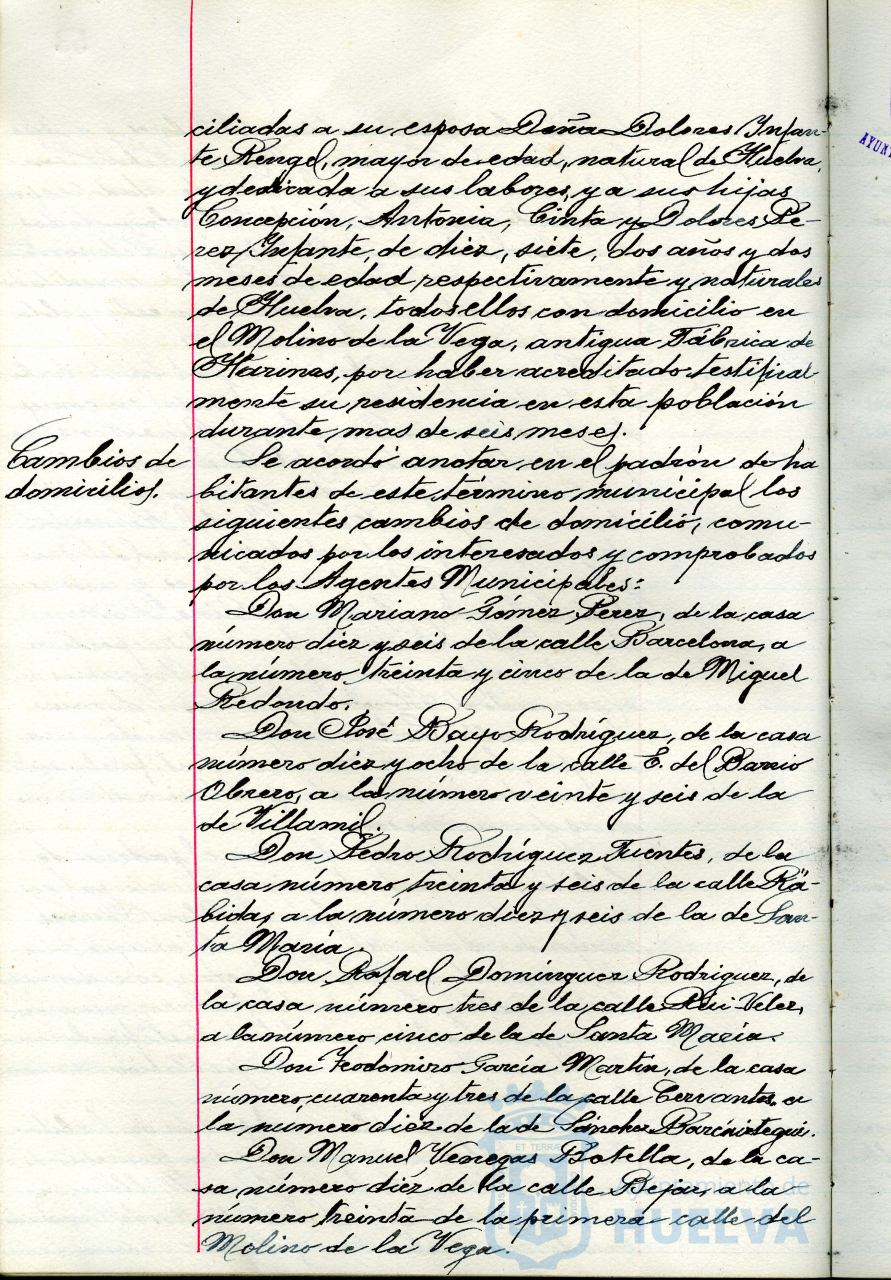 ciliadas a su esposa Doña Dolores Infan-
te Rengel, mayor de edad, natural de Huelva,
y dedicada a sus labores, y a sus hijas
Concepción, Antonia, Cinta y Dolores Pé-
rez Infante, de diez, siete, dos años y dos
meses de edad respectivamente y naturales
de Huelva, todos ellos con domicilio en
el Molino de la Vega, antigua Fábrica de
Harinas, por haber acreditado testifical-
mente su residencia en esta población
durante mas de seis meses.
Cambios de
domicilios.
Se acordó anotar en el padrón de ha
bitantes de este término municipal los
siguientes cambios de domicilio, comu-
nicados por los interesados y comprobados
por los Agentes Municipales:
Don Mariano Gómez Perez, de la casa
número diez y seis de la calle Barcelona, a
la número treinta y cinco de la de Miguel
Redondo.
Don José Bayo Rodríguez, de la casa
número diez y ocho de la calle E. del Barrio
Obrero, a la número veinte y seis de la
de Villamil.
Don Pedro Rodríguez Fuentes, de la
casa número treinta y seis de la calle Rá-
bida, a la número diez y seis de la de San-
ta María.
Don Rafael Domínguez Rodriguez, de
la casa número tres de la calle Rui-Velez,
a la número cinco de la de Santa María.
Don Teodomiro García Martín, de la casa
número cuarenta y tres de la calle Cervantes, a
la número diez de la de Sánchez Barcáiztegui.
Don Manuel Venegas Botella, de la ca-
sa número diez de la calle Bejar, a la
número treinta de la primera calle del
Molino de la Vega.
AYUN
ET TERRAE
Ayuntamiento de
HUELVA